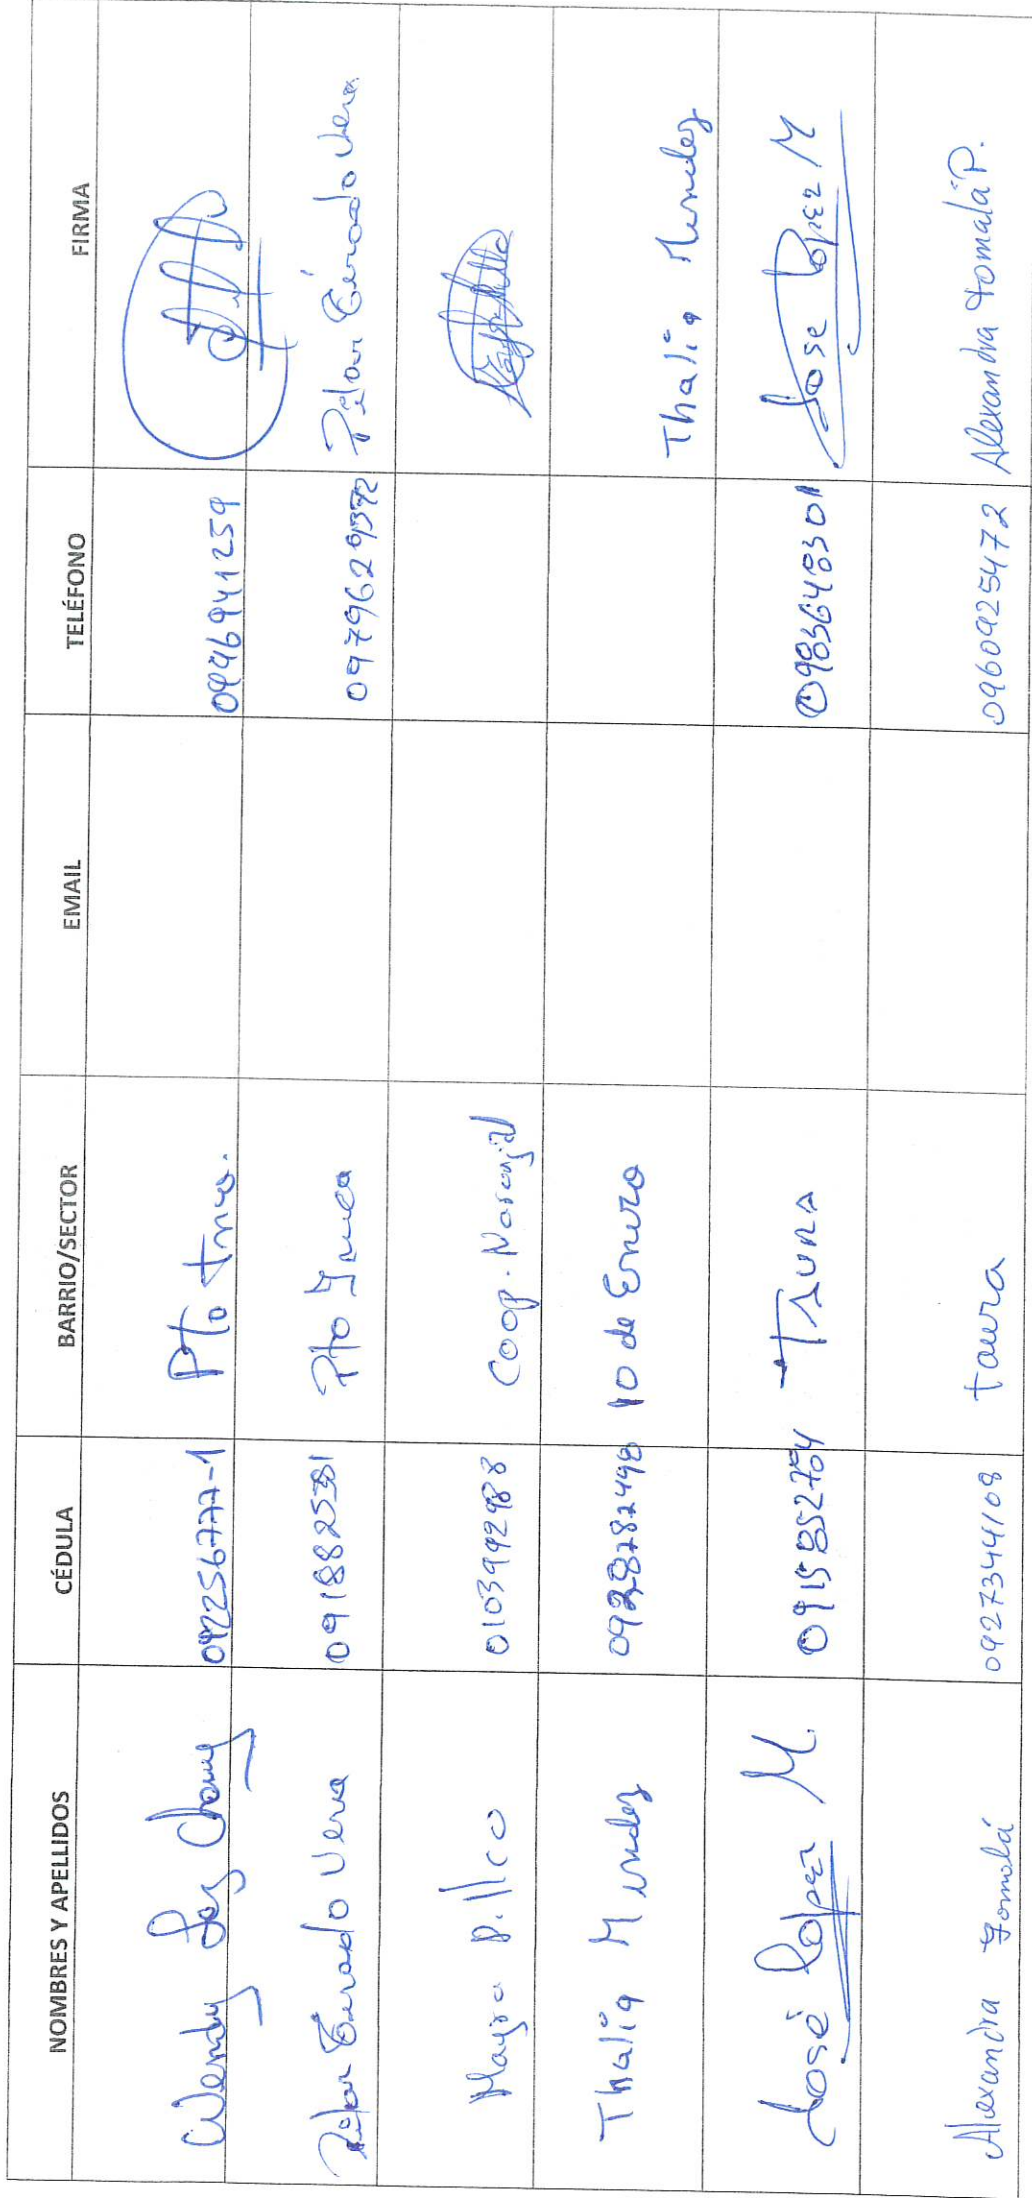 NOMBRES Y APELLIDOS CÉDULA BARRIO/SECTOR EMAIL TELÉFONO FIRMA
Wendy Chang 092256777-1 Pto Inca. 0946941259
Pilar Vera 0918825381 Pto Inca 0979629392 Pilar Vera
Mayra Pillco 0103992988 Coop. Naranjal
Thalia Mendez 10 de Enero Thalia Mendez
José Lopez M. Taura 0983648301 Jose Lopez M
Alexandra Tomalá 0927344108 taura 0960925472 Alexandra Tomalá P.